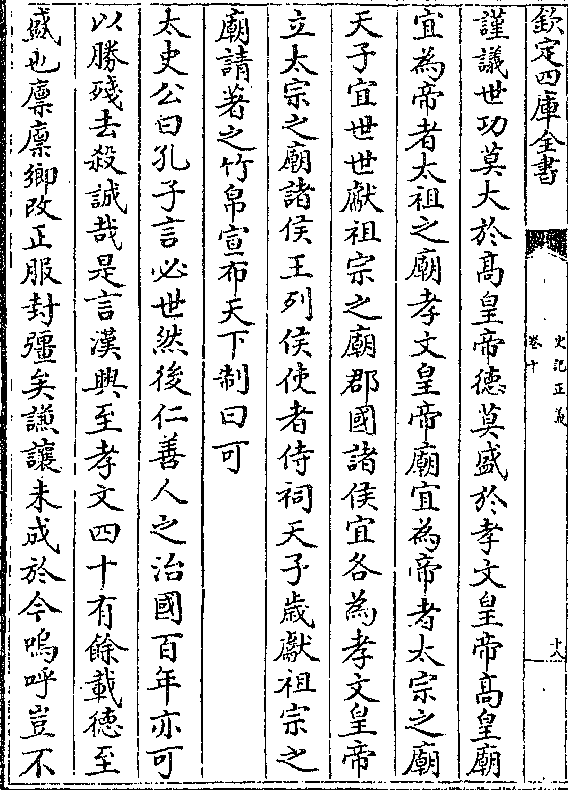 欽定四庫全書
史記正義
卷十
十八
謹議世功莫大於髙皇帝德莫盛於孝文皇帝髙皇廟
宜為帝者太祖之廟孝文皇帝廟宜為帝者太宗之廟
天子宜世世獻祖宗之廟郡國諸侯宜各為孝文皇帝
立太宗之廟諸侯王列侯使者侍祠天子歲獻祖宗之
廟請著之竹帛宣布天下制曰可
太史公曰孔子言必世然後仁善人之治國百年亦可
以勝殘去殺誠哉是言漢興至孝文四十有餘載德至
盛也廪廪鄉改正服封疆矣謙讓未成於今嗚呼豈不